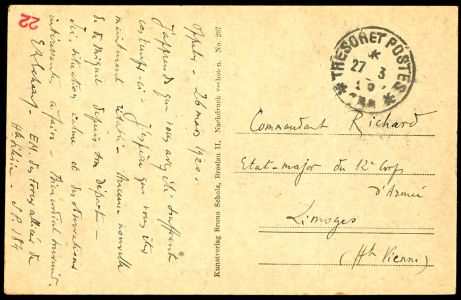 Oppeln. 26 mars 1920.
J'apprends que vous avez été souffrant
ces temps ci. J'espère que vous êtes
maintenant rétabli. Aucune nouvelle
de Miquel depuis son départ —
Ici, situation calme et des observations
intéressantes à faire. Bien cordial souvenir.
EM des Forces alliées de
Hte Silésie. S.P. 184
22
Kunstverlag Bruno Scholz, Breslau II. Nachdruck verboten. No. 207
TRESOR ET POSTES
27 3
Commandant Richard
Etat-major du 12e Corps
d'Armée
Limoges
(Hte Vienne)